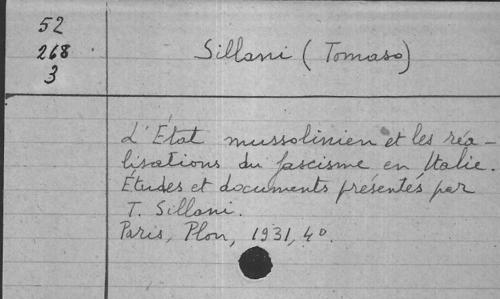 52
268
3
Sillani (Tomaso)
L'État mussolinien et les réa-
lisations du fascisme en Italie.
Études et documents présentés par
T. Sillani.
Paris, Plon, 1931, 4º.